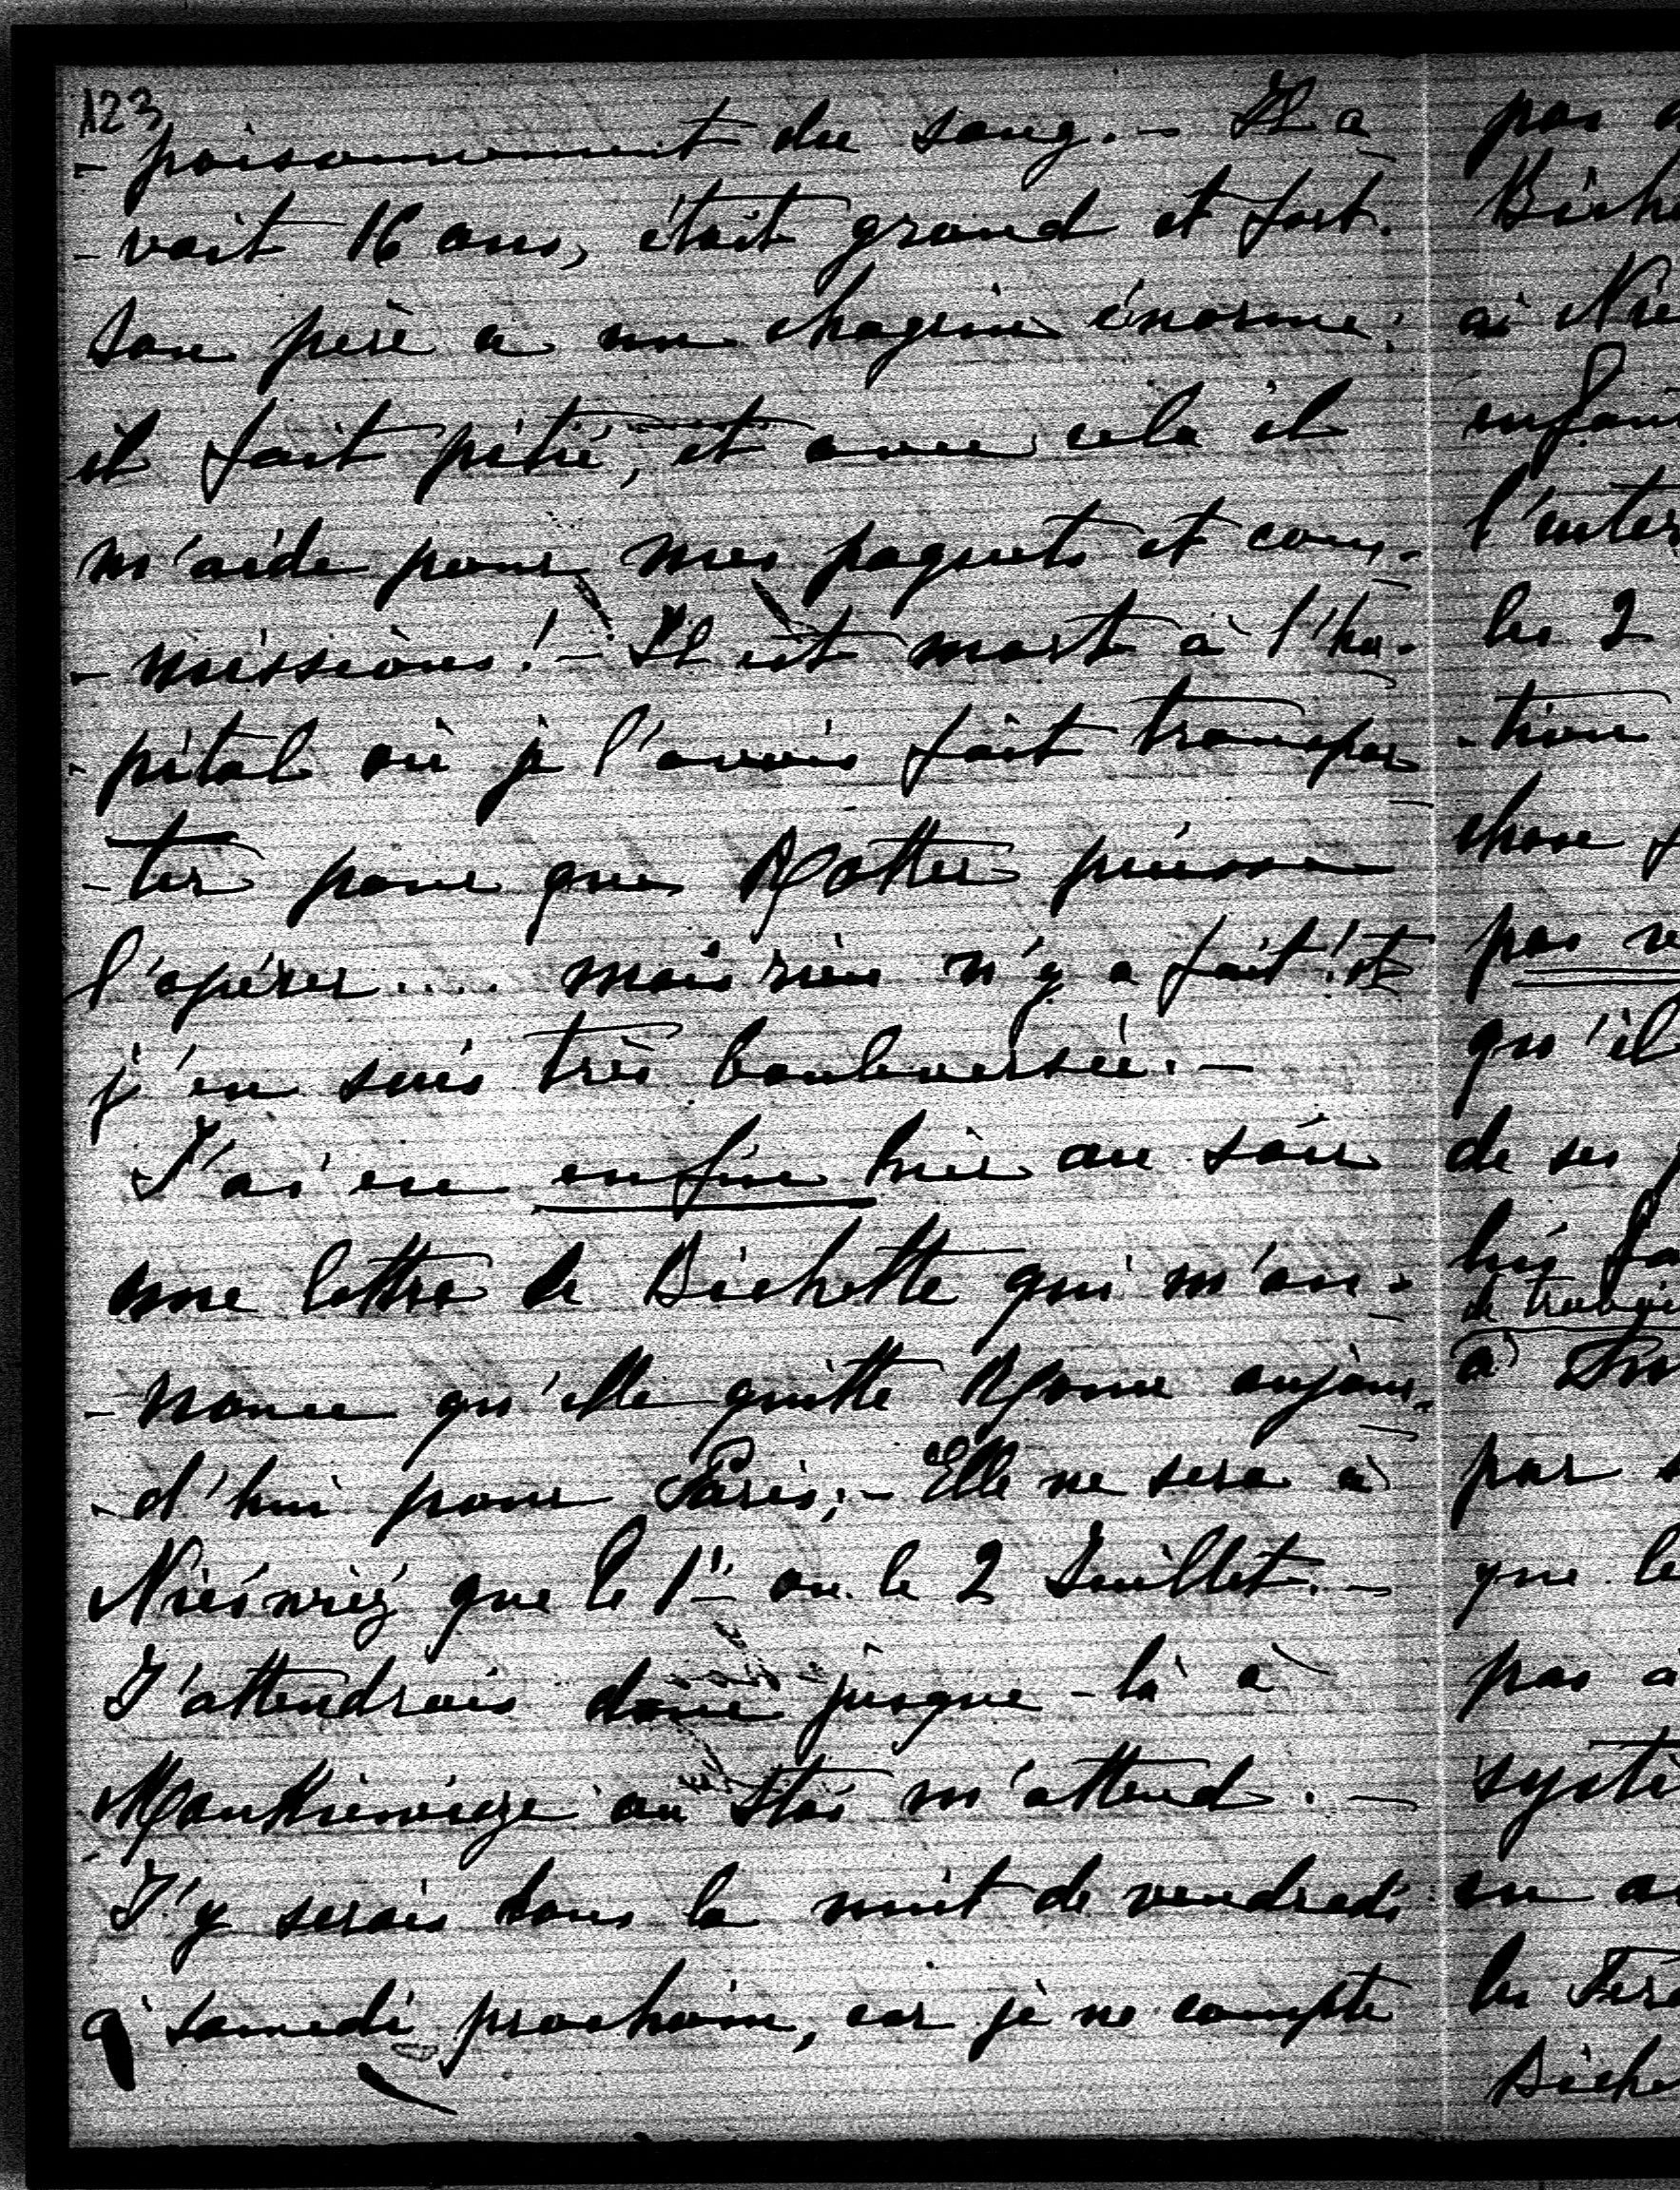 123
- poisonnement du sang. - Il a
- vait 16 ans, était grand et fort.
Son père a un chagrin énorme;
il fait pitié, et avec cela il
m'aide pour mes paquets et com-
- missions! - Il est mort à l'hô-
- pital où je l'avais fait transpor
- ter pour que Rotter puisse
l'opérer.... mais rien n'y a fait! et
j'en suis très bouleversée. -
J'ai eu enfin hier au soir
une lettre de Bichette qui m'an-
- nonce qu'elle quitte Rome aujour-
- d'hui pour Paris; - Elle ne sera à
Nieśwież que le 1er ou le 2 Juillet. -
J'attendrais donc jusque-là à
Mankiewicze où Staś m'attend. -
J'y serais dans la nuit de vendredi
à samedi prochain, car je ne compte
pas
Bich
à Nie
enfan
l'inter
les 2
- tion
chose
pas
qu'il
de ses
lui
de travai
à
par
que le
pas a
systè
en
les
Biche